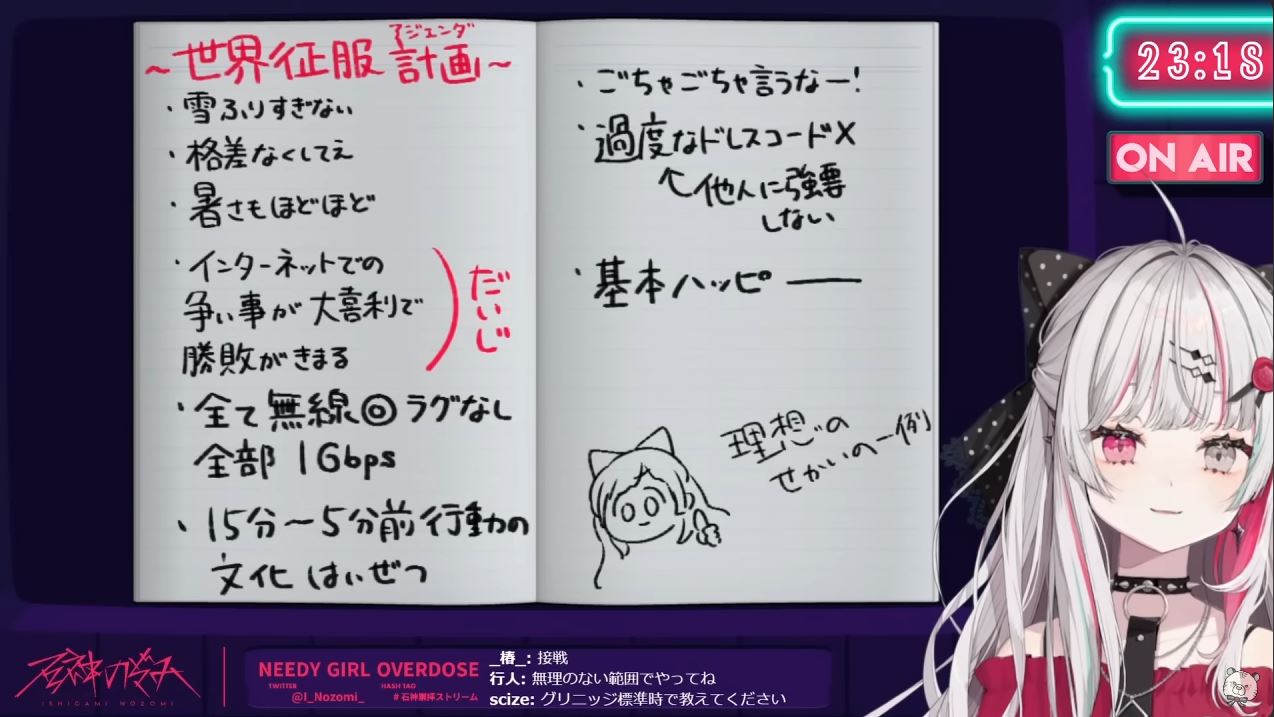 アジェンダ
～世界征服計画～
・雪ふりすぎない
・格差なくしてえ
・暑さもほどほど
・インターネットでの
争い事が大喜利で
勝敗がきまる
だいじ
・全て無線◎ラグなし
全部1Gbps
・15分～5分前行動の
文化はいぜつ
・ごちゃごちゃ言うなー!
・過度なドレスコードX
↖他人に強要
しない
・基本ハッピー
理想の
せかいの一例
23:18
ON AIR
石神のぞみ
ISHIGAMI NOZOMI
NEEDY GIRL OVERDOSE
TWITTER
@I_Nozomi_
HASH TAG
#石神崇拝ストリーム
_椿_: 接戦
行人: 無理のない範囲でやってね
scize: グリニッジ標準時で教えてください